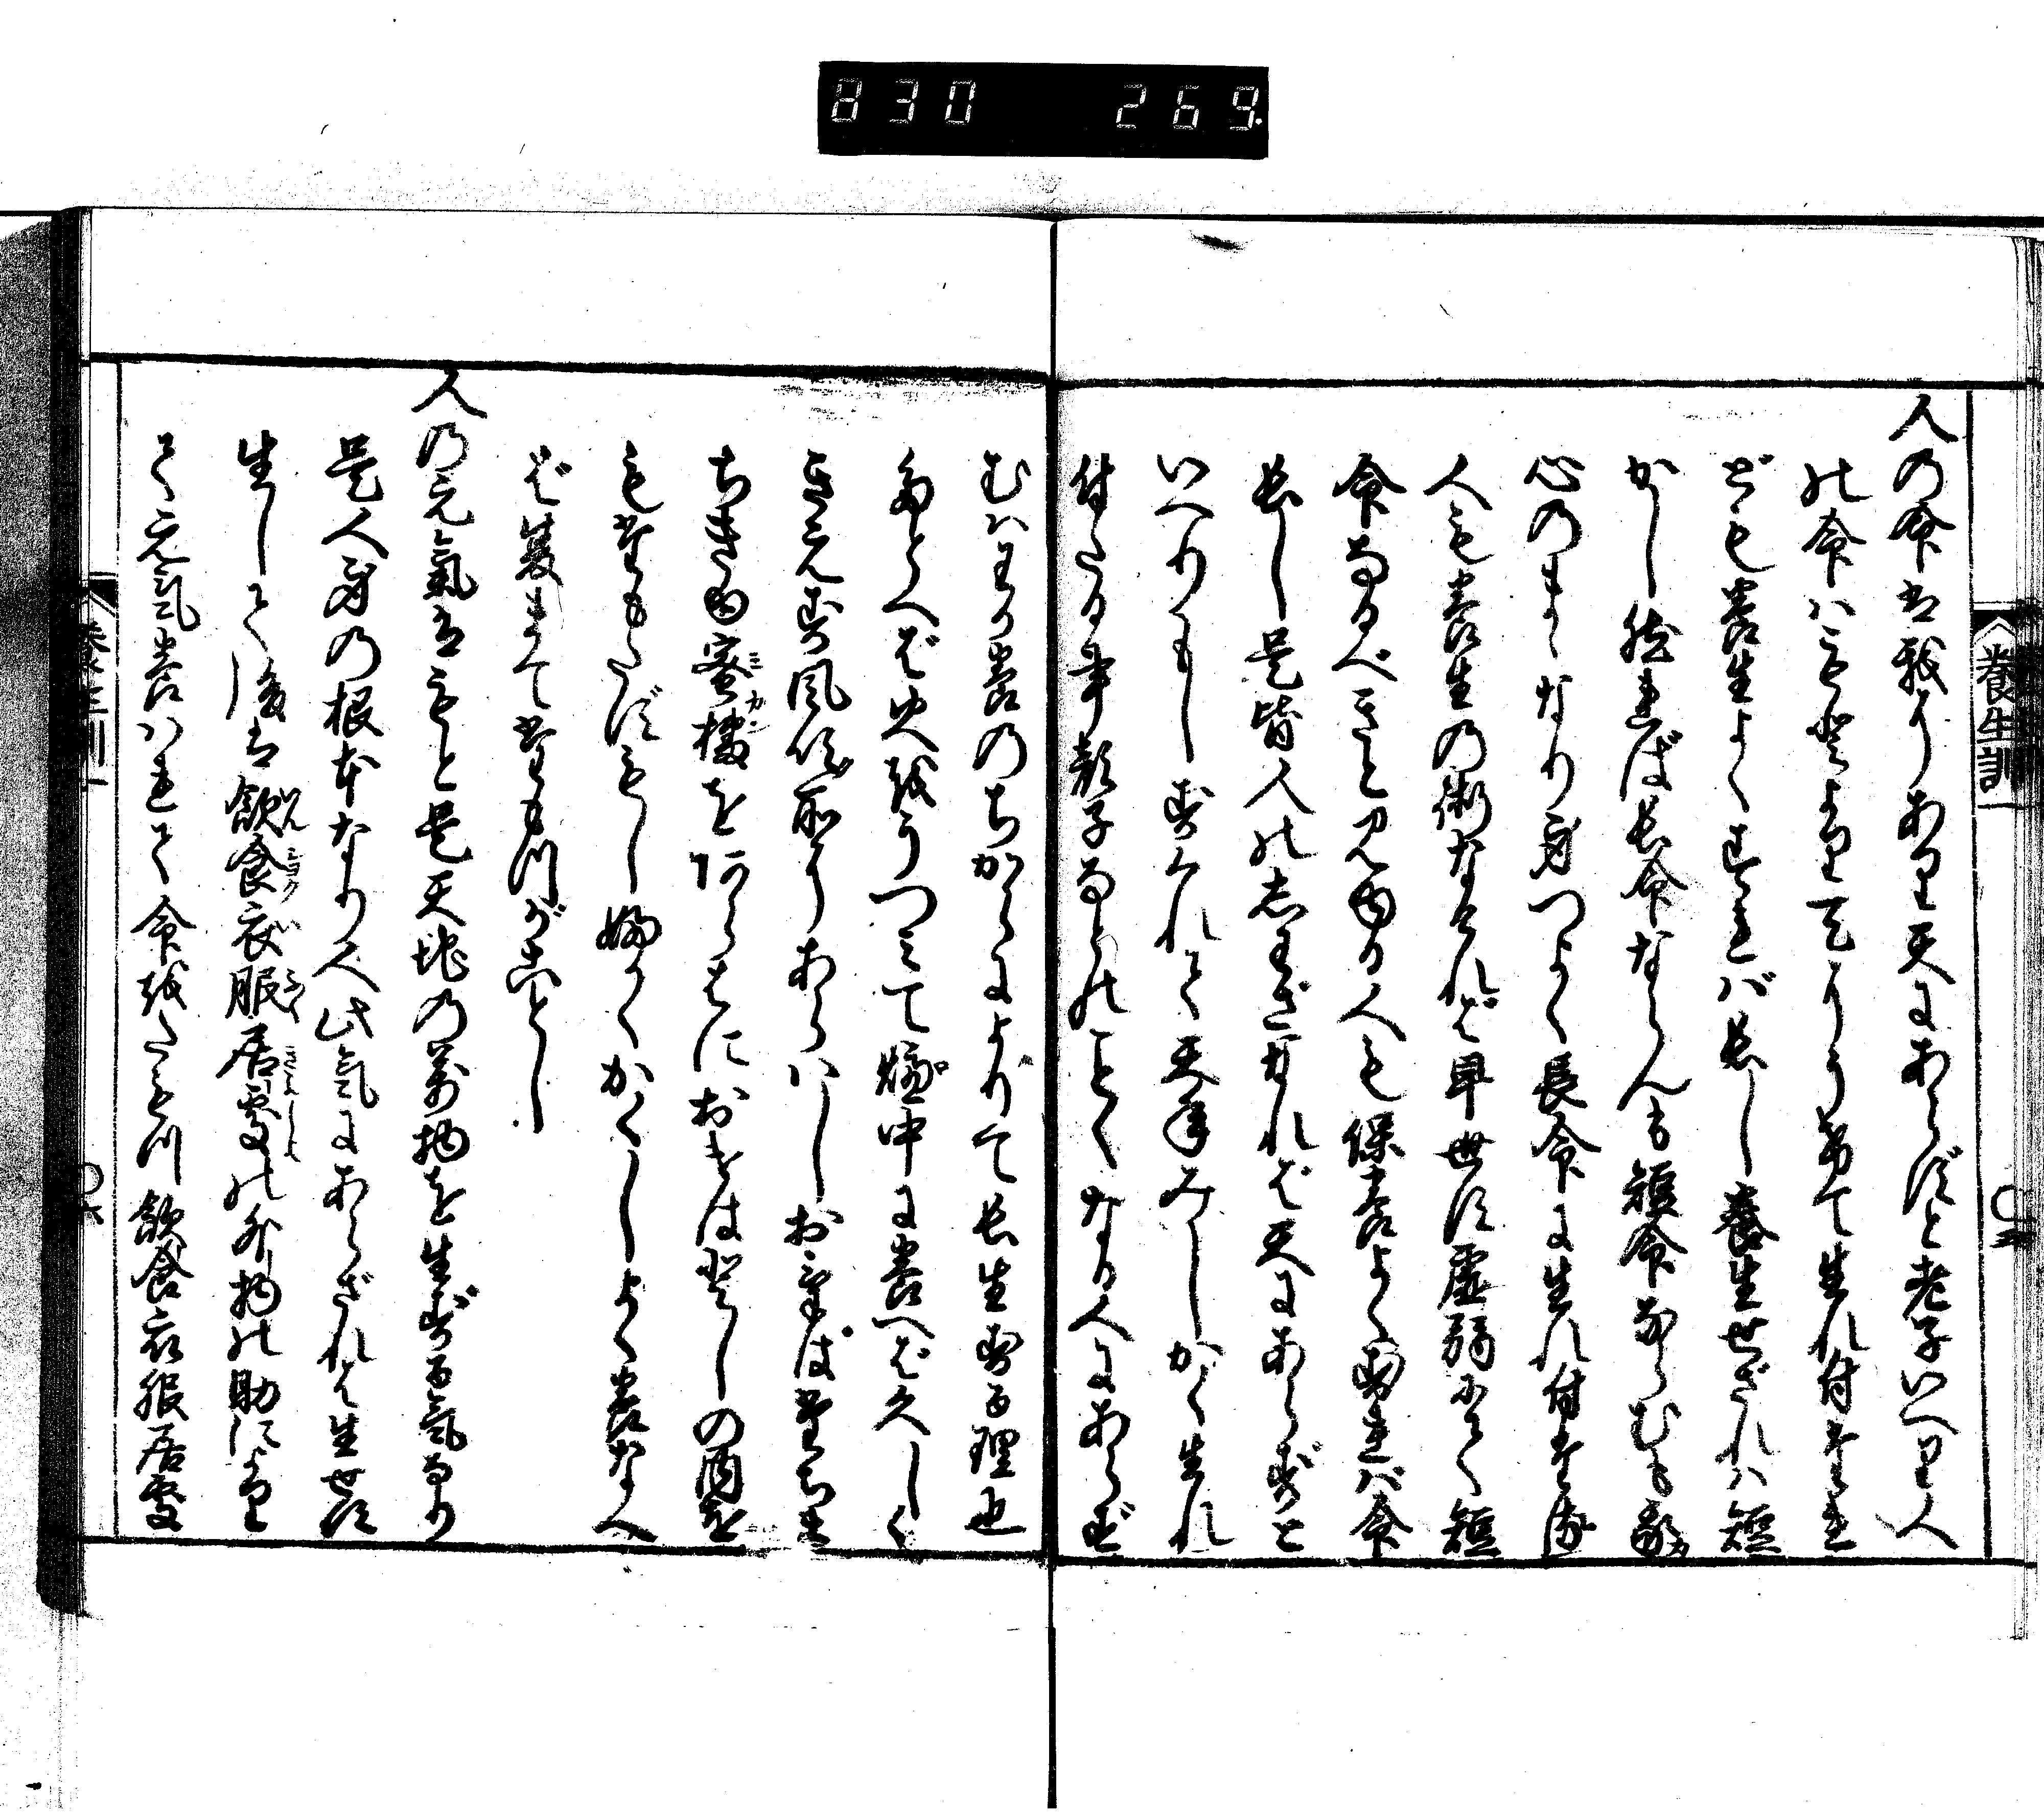 830 269.
養生訓一
〇五
人の命は我にあり天にあらずと老子いへり人
の命ハもとより天にうけて生れ付たれ
ども養生よくすれバ長し養生せざれハ短
かし然れば長命ならんも短命ならむも我
心のまゝなり身つよく長命に生れ付たる
人も養生の術なければ早世す虚弱にて短
命なるべきと見ゆる人も保養よくすれバ命
長し是皆人のしわざなれば天にあらずと
いへりもしすぐれて天年みじかく生れ
付たる事顔子などのことくなる人にあらず
むハわか養のちからによりて長生する理也
たとへば火をうつみて炉中に養へば久しく
きえず風吹所にあらハしおけばたちま
ちきゆ蜜橘をあらはにおけはとしの内を
もたもたずもしふかくかくしよく養なへ
ば夏まてたもつがごとし
人の元氣はもと是天地の萬物を生ずる氣なり
是人身の根本なり人此氣にあらざれは生せす
生して後は飲食衣服居處の外物の助により
て元氣養ハれて命をたもつ飲食衣服居處
養生訓一
〇六